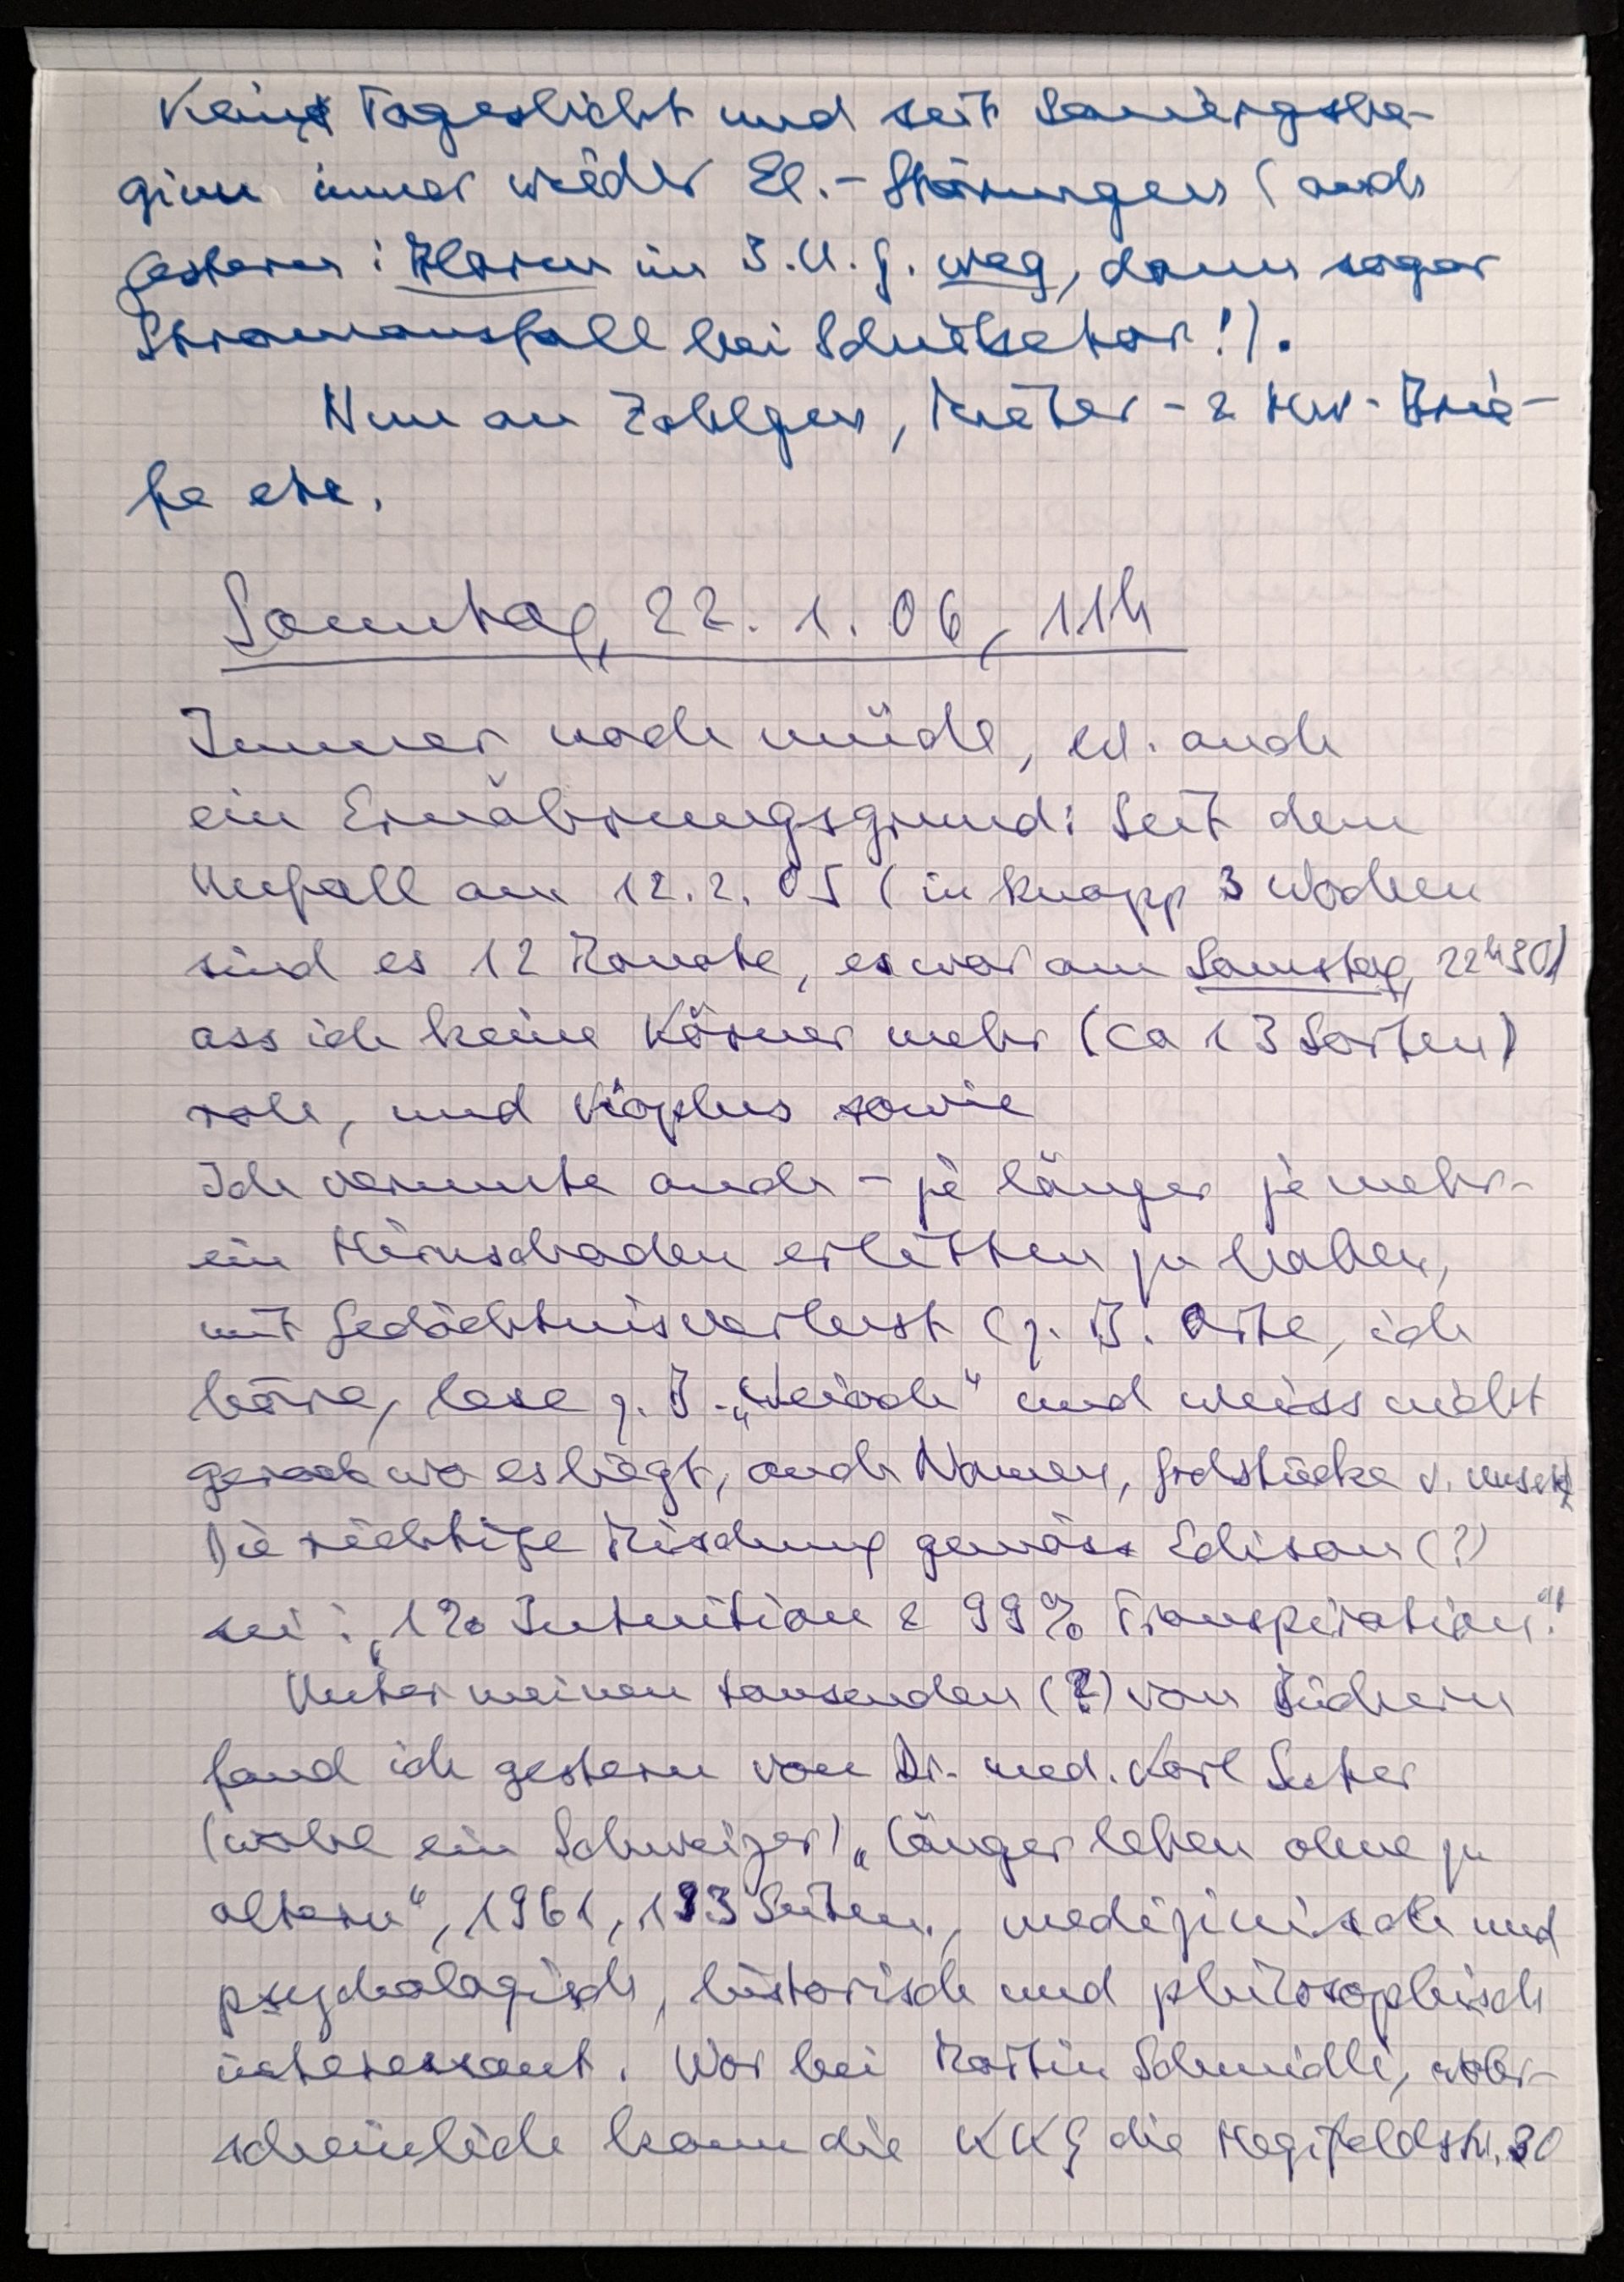 Kein Tageslicht und seit Sanierigsbe-
ginn immer wieder El.-Störungen (auch
gestern: Alarm im 3.U.G. weg, dann sogar
Stromausfall bei Schiebetor!).
Nun an Zahlgen, Mieter- & HW-Brie-
fe etc.
Sonntag, 22.1.06, 11h
Immer noch müde, evl. auch
ein Ernährungsgrund: Seit dem
Unfall am 12.2.05 (in knapp 3 Wochen
sind es 12 Monate, es war am Samstag, 22h30)
ass ich keine Körner mehr (ca 13 Sorten)
rohe, und sowie
Ich vermute auch - je länger je mehr -
ein Hirnschaden erlitten zu haben,
mit Gedächtnisverlust (z.B. Orte, ich
höre, lese z.B. „Weiach" und weiss nicht
gerade wo es liegt, auch Namen, Gedstücke v.
Die richtige Mischung gemäss Edison (?)
sei: „1% Intuition & 99% Transpiration."
Unter meinen tausenden (?) von Büchern
fand ich gestern von Dr. med. Karl Suter
(wohl ein Schweizer) „Länger leben ohne zu
altern", 1961, 193 Seiten, medizinisch und
psychologisch, historisch und philosophisch
interessant. War bei Martin Schmidli, wahr-
scheinlich kann die KKG die Hegifeldstr. 30